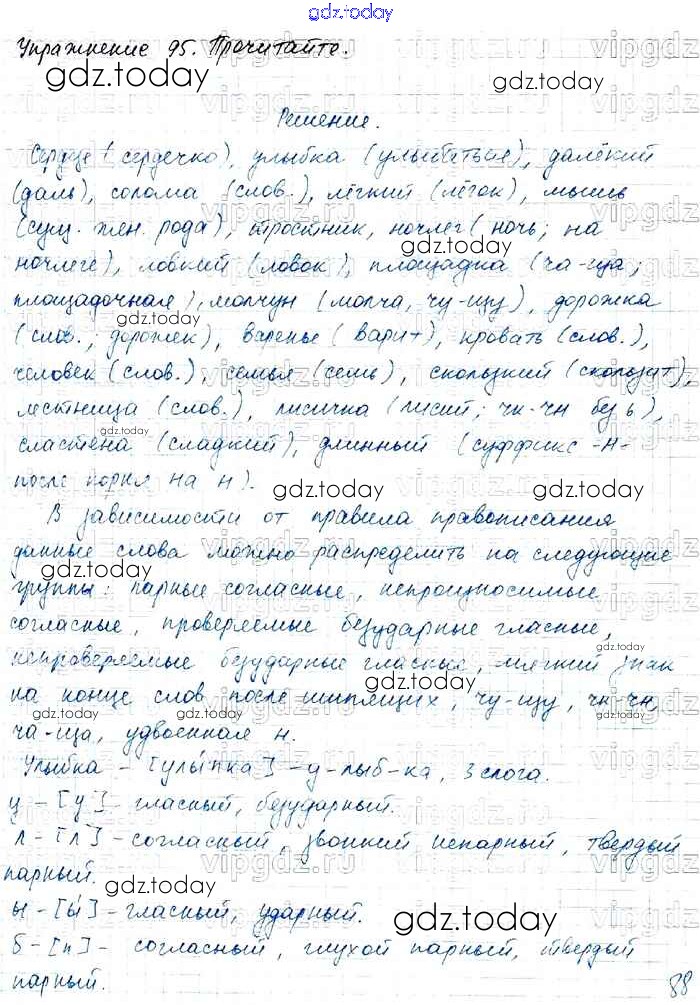 gdz.today
Упражнение 95. Прочитайте.
gdz.today gdz.today
Решение.
Сердце (сердечко), улыбка (улыбаться), далёкий
(даль), солома (слов.), лёгкий (лёгок), мышь
(сущ. жен. рода), тростник, ночлег (ночь; на
gdz.today
ночлеге), ловкий (ловок), площадка (ча-ща;
площадочная), молчун (молча, чу-щу), дорожка
gdz.today
(слов.; дорожек), варенье (варит), кровать (слов.),
человек (слов.), семья (семь), скользкий (скользит),
лестница (слов.), лисичка (лисий; чк-чн без ь),
gdz.today
сластёна (сладкий), длинный (суффикс -н-
после корня на н).
gdz.today gdz.today
В зависимости от правила правописания
данные слова можно распределить на следующие
gdz.today
группы: парные согласные, непроизносимые
согласные, проверяемые безударные гласные,
gdz.today
непроверяемые безударные гласные, мягкий знак
gdz.today
на конце слов после шипящих, чу-щу, чк-чн,
gdz.today gdz.today
ча-ща, удвоенная н.
Улыбка - [улы́пка] - у-лыб-ка, 3 слога.
у - [у] - гласный, безударный.
л - [л] - согласный, звонкий непарный, твердый
парный.
gdz.today
ы - [ы́] - гласный, ударный.
gdz.today
б - [п] - согласный, глухой парный, твердый
парный.
88
vipgdz.ru